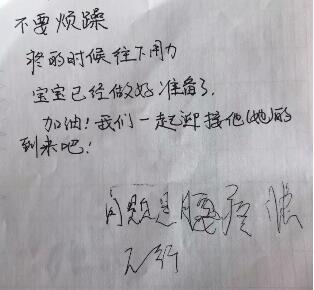 不要烦躁
疼的时候往下用力
宝宝已经做好准备了,
加油!我们一起迎接他(她)的
到来吧!
问题是腰疼的
不行